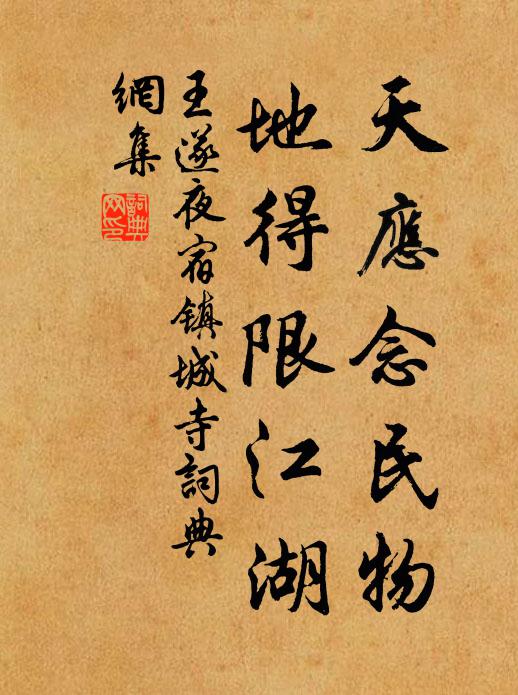 天應念民物
地得限江湖
王遂夜宿鎮城寺詞典
網集
詞典網印